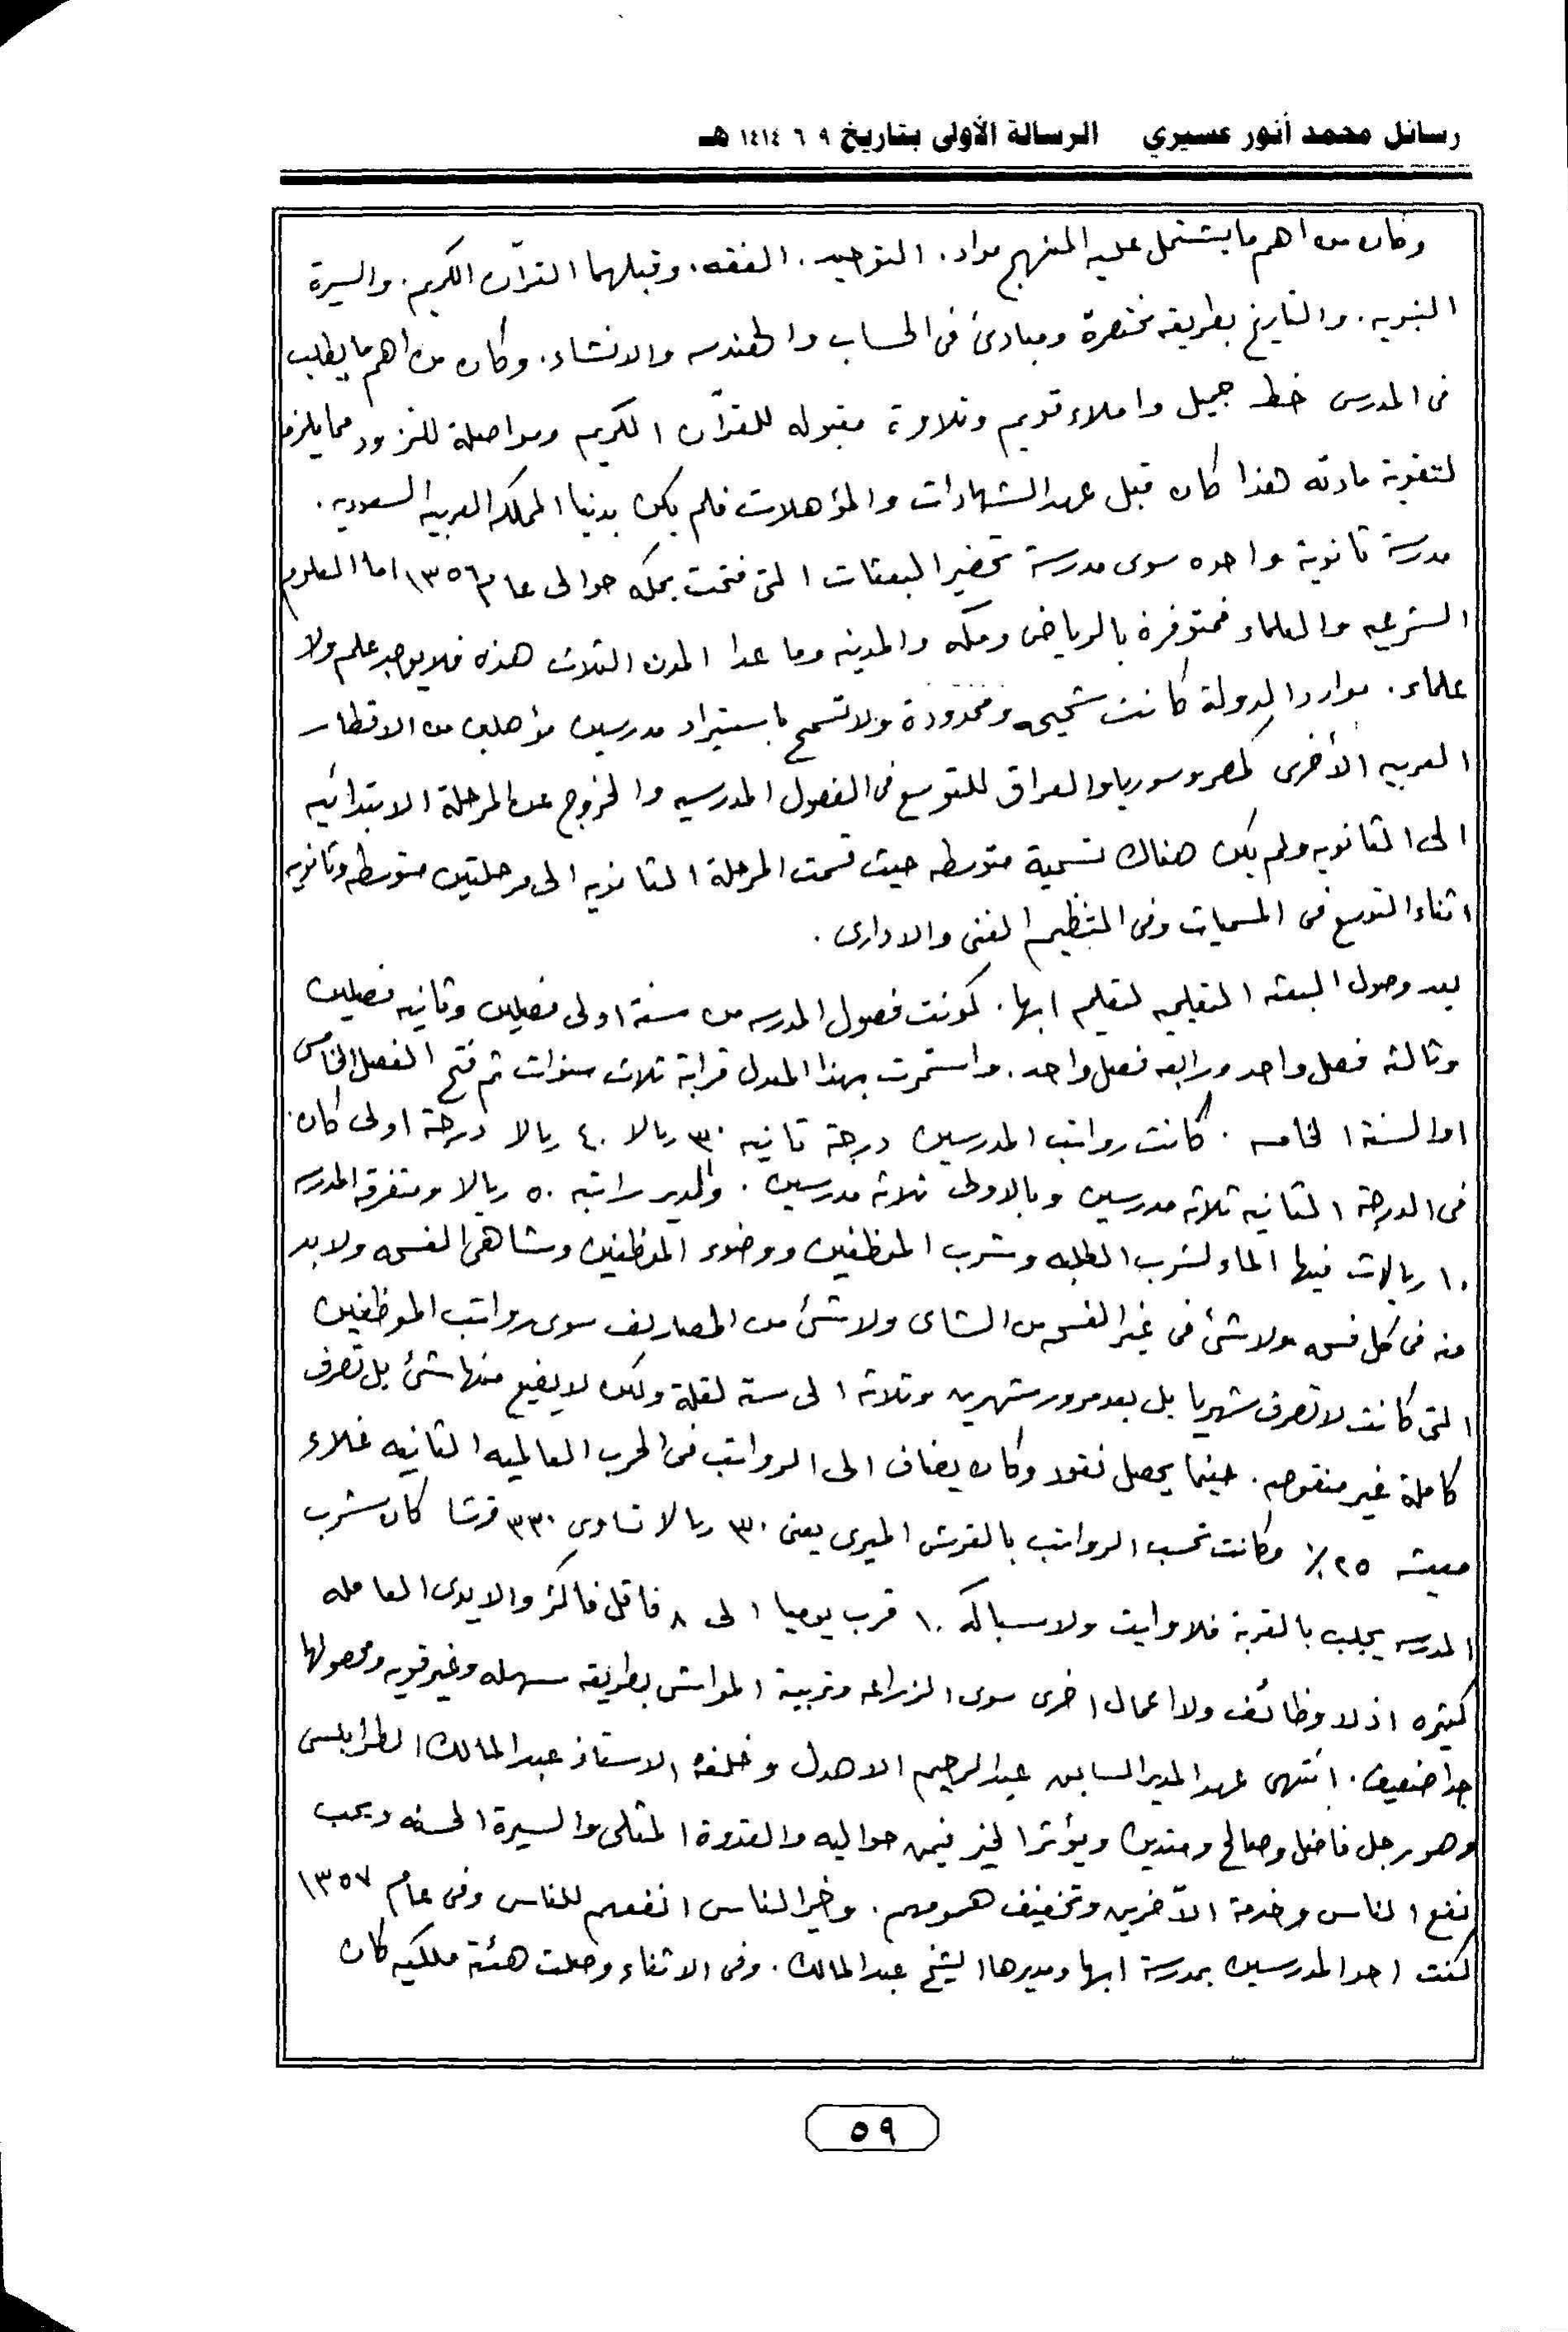 رسائل محمد أنور عسيري الرسالة الأولى بتاريخ ٩ ٦ ١٤١٤ هـ
وكان من اهم ما يشتمل عليه المنهج مواد. التوحيد. الفقه. وقبلهما القرآن الكريم. والسيرة
النبويه. والتاريخ بطريقه مختصرة ومبادئ فى الحساب والهندسه والانشاء. وكان من اهم ما يطلب
فى المدرس خط جميل واملاء قويم وتلاوة مقبوله للقرآن الكريم ومواصلة للتزود مما يلزم
لتقوية مادته هذا كان قبل عهد الشهادات والمؤهلات فلم يكن بدنيا المملكه العربيه السعوديه.
مدرسة ثانوية واحده سوى مدرسة تحضير البعثات التى فتحت بمكه حوالى عام ١٣٥٦ اما العلوم
الشرعيه والعلماء فمتوفرة بالرياض ومكه والمدينه وما عدا المدن الثلاث هذه فلا يوجد علم ولا
علماء. موارد الدولة كانت شحيحه ومحدودة ولا تسمح باستيراد مدرسين مؤهلين من الاقطار
العربيه الأخرى كمصر وسوريا والعراق للتوسع فى الفصول المدرسيه والخروج عن المرحلة الابتدائيه
الى الثانويه ولم يكن هناك تسمية متوسطه حيث قسمت المرحلة الثانويه الى مرحلتين متوسطه وثانويه
اثناء التوسع فى المسميات وفى التنظيم الفنى والادارى.
بعد وصول البعثه التعليميه لتعليم ابها. كونت فصول المدرسه من سنة اولى فصلين وثانيه فصلين
وثالثه فصل واحد ورابعه فصل واحد. واستمرت بهذا المعدل قرابة ثلاث سنوات ثم فتح الفصل الخامس
او السنة الخامسه. كانت رواتب المدرسين درجة ثانيه ٣٠ ريالا ٤٠ ريالا درجة اولى كان
فى الدرجة الثانيه ثلاثه مدرسين وبالاولى ثلاثه مدرسين. والمدير راتبه ٥٠ ريالا ومتفرقه المدرسه
١٠ ريالات فيها الماء لشرب الطلبه وشرب الموظفين ووضوء الموظفين وشاهى الفسحه ولابد
منه فى كل فسحه ولا شئ فى غير الفسحه من الشاى ولا شئ من المصاريف سوى رواتب الموظفين
التى كانت لا تصرف شهريا بل بعد مرور شهرين وثلاثه الى سته لقلة ولكن لا يضيع منها شئ بل تصرف
كاملة غير منقوصه. حينما يحصل نقود وكان يضاف الى الرواتب فى الحرب العالميه الثانيه غلاء
معيشه ٢٥٪ وكانت تحسب الرواتب بالقرش الميرى يعنى ٣٠ ريالا تساوى ٣٣٠ قرشا كان شرب
المدرسه يجلب بالقربة فلا وايت ولا سباكه ١٠ قرب يوميا الى ٨ فاقل فاكثر والايدى العامله
كثيره اذ لا وظائف ولا اعمال اخرى سوى الزراعه وتربية المواشى بطريقه سهله وغير قويه ومحصولها
جدا ضعيف. انتهى عهد المدير السابق عبدالرحيم الاهدل وخلفه الاستاذ عبدالمالك الطرابلسى
وهو رجل فاضل وصالح ومتدين ويؤثر الخير فيمن حواليه والقدوة المثلى والسيرة الحسنه ويحب
نفع الناس وخدمة الآخرين وتخفيف همومهم. وخير الناس انفعهم للناس وفى عام ١٣٥٧
كنت احد المدرسين بمدرسة ابها ومديرها الشيخ عبدالمالك. وفى الاثناء وصلت هئة ملكيه كان
٥٩